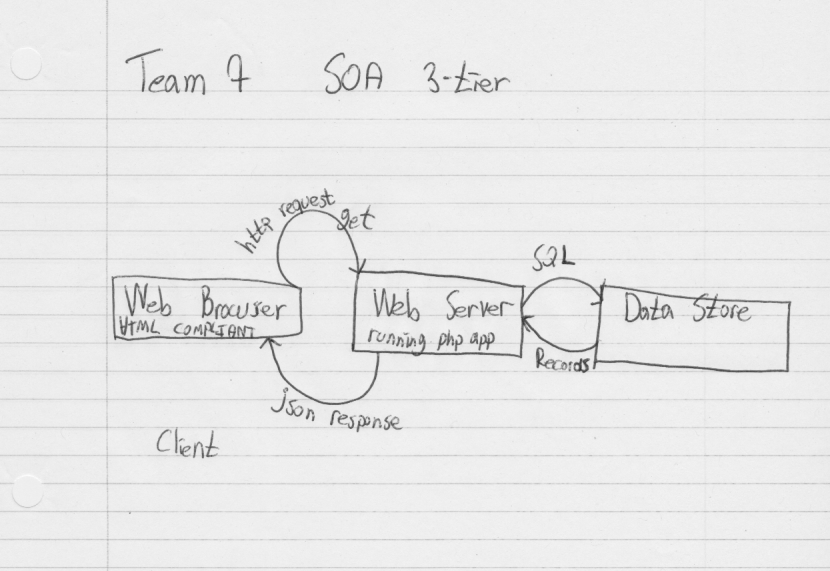 Team 7 SOA 3-tier
http request get
SQL
Web Browser
HTML COMPLIANT
Web Server
running php app
Data Store
Records
json response
Client